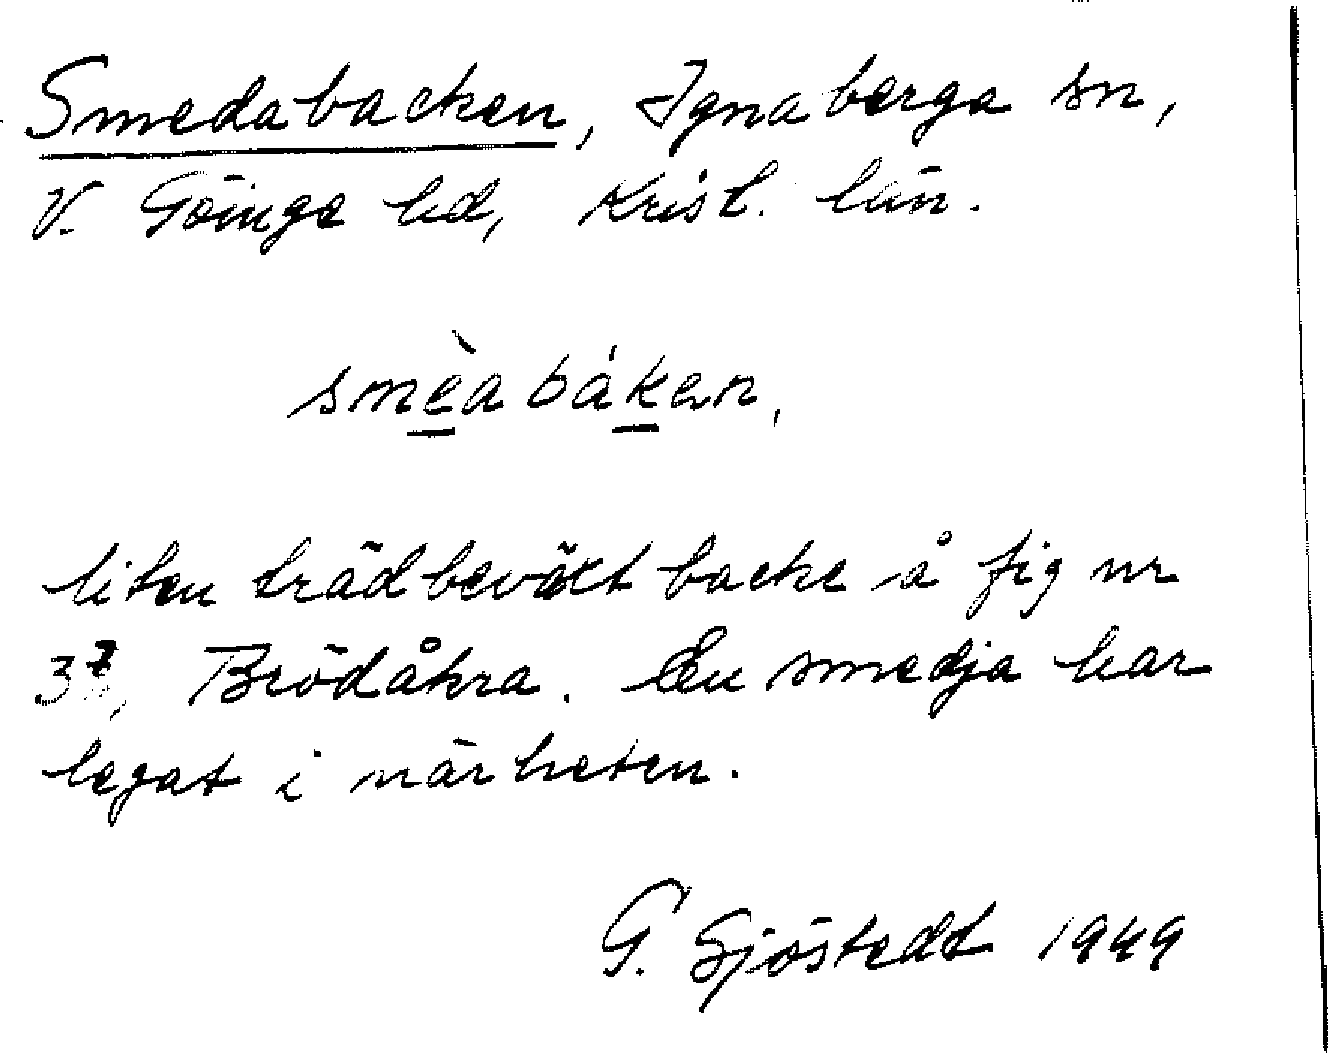 Smedabacken, Ignaberga sn,
V. Göinge hd, Krist. län.
smèabáken,
liten trädbeväxt backe å fig nr
37, Brödåkra. En smedja har
legat i närheten.
G. Sjöstedt 1949